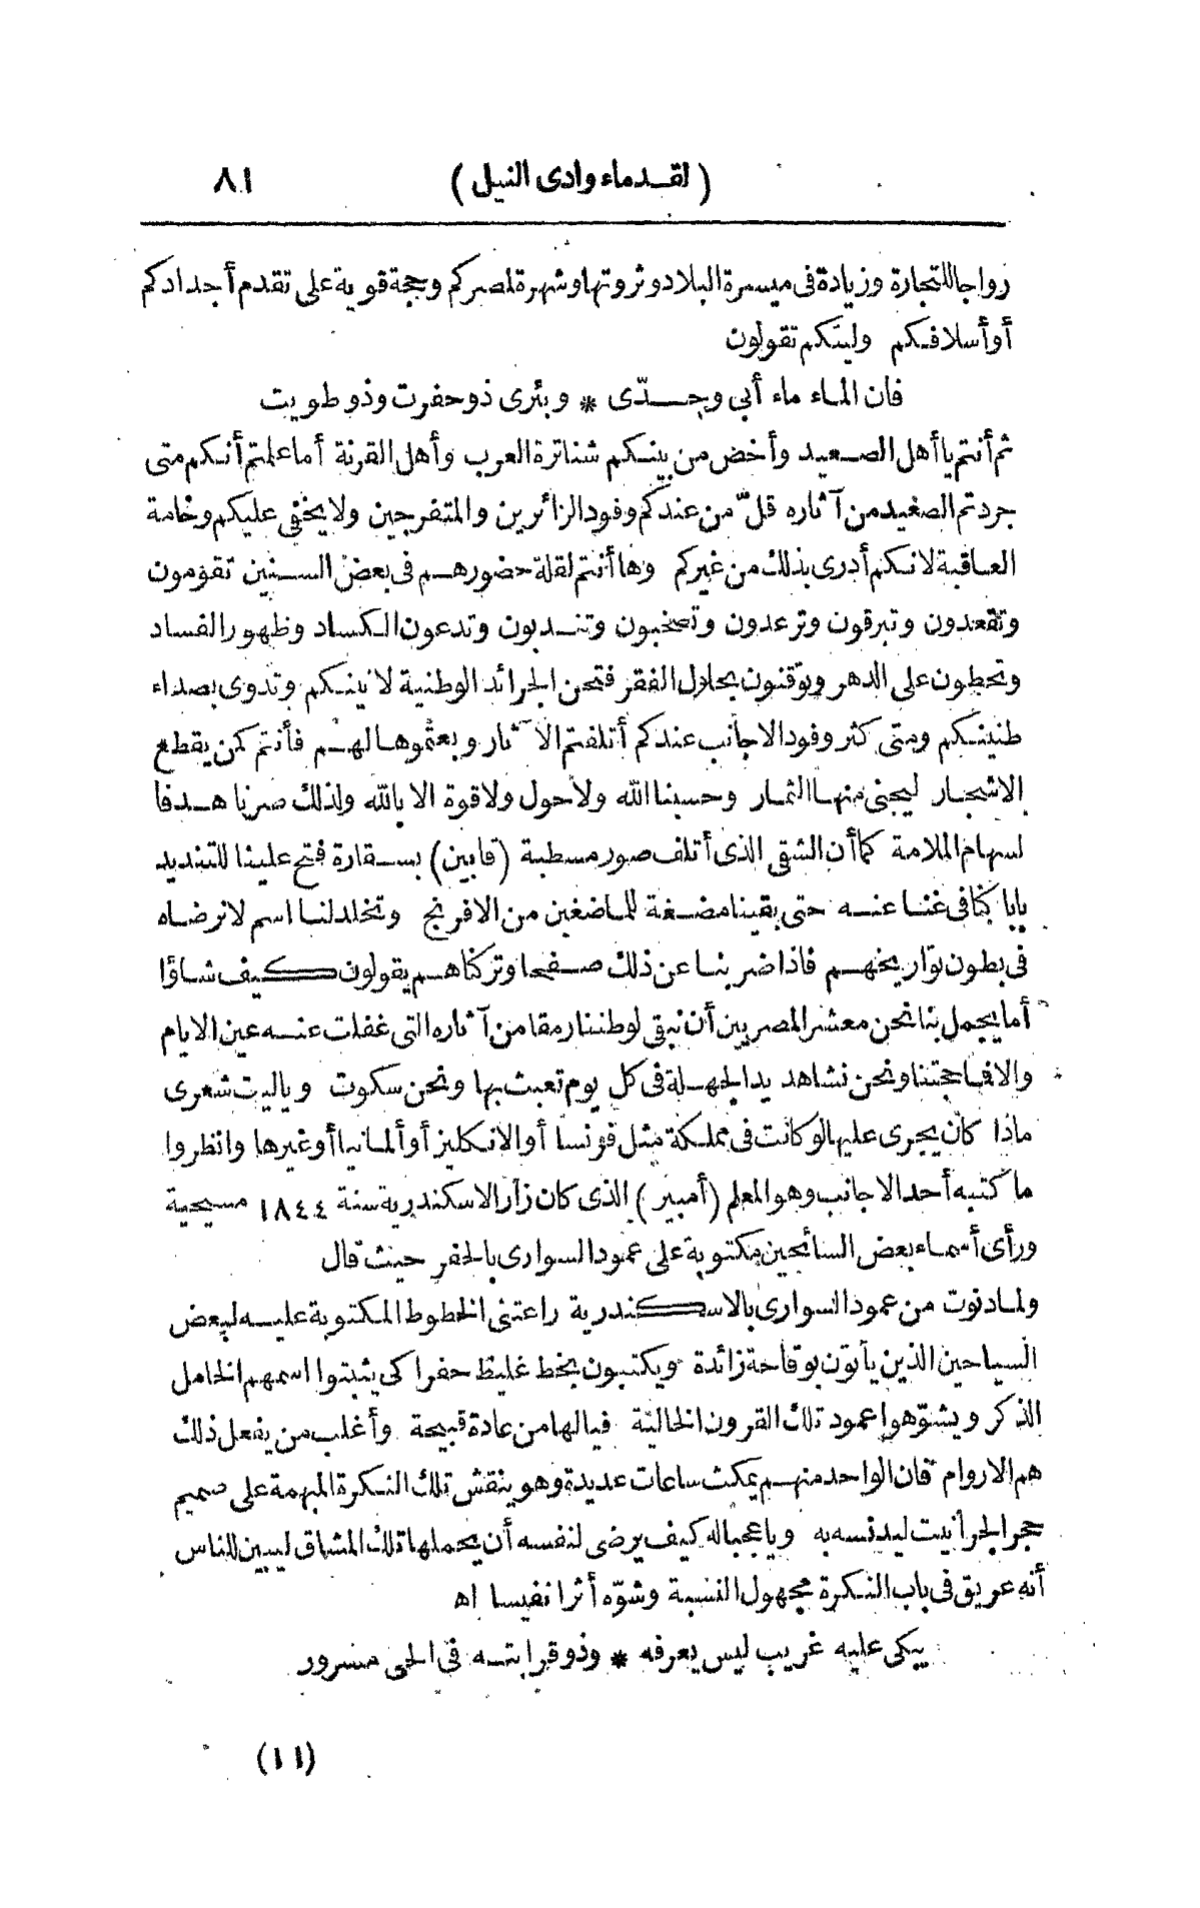 (لقدماء وادى النيل) ٨١
رواجا للتجارة وزيادة فى ميسرة البلاد وثروتها وشهرة لمصركم وحجة قوية على تقدم أجدادكم
أو أسلافكم وليتكم تقولون
فان الماء ماء أبى وجدّى * وبئرى ذو حفرت وذو طويت
ثم أنتم يا أهل الصعيد وأخض من بينكم شناترة العرب وأهل القرنة أما علمتم أنكم متى
جردتم الصعيد من آثاره قلّ من عندكم وفود الزائرين والمتفرجين ولا يخفى عليكم وخامة
العاقبة لانكم أدرى بذلك من غيركم وها أنتم لقلة حضورهم فى بعض السنين تقومون
وتقعدون وتبرقون وترعدون وتصخبون وتندبون وتدعون الكساد وظهور الفساد
وتحطون على الدهر وتوقنون بحلول الفقر فتحن الجرائد الوطنية لانينكم وتدوى بصداء
طنينكم ومتى كثر وفود الاجانب عندكم أتلفتم الآثار وبعتموها لهم فأنتم كمن يقطع
الاشجار ليجنى منها الثمار وحسبنا الله ولا حول ولا قوة الا بالله ولذلك صرنا هدفا
لسهام الملامة كما أن الشقى الذى أتلف صور مسطبة (قابين) بسقارة فتح علينا للتنديد
بابا كنا فى غنا عنه حتى بقينا مضغة للماضغين من الافرنج وتخلد لنا اسم لا نرضاه
فى بطون تواريخهم فاذا ضربنا عن ذلك صفحا وتركناهم يقولون كيف شاؤا
أما يجمل بنا نحن معشر المصريين أن نبقى لوطننا رمقا من آثاره التى غفلت عنه عين الايام
والا فما حجتنا ونحن نشاهد يد الجهلة فى كل يوم تعبث بها ونحن سكوت وياليت شعرى
ماذا كان يجرى عليها لو كانت فى مملكة مثل فرنسا أو الانكليز أو ألمانيا أو غيرها وانظروا
ما كتبه أحد الاجانب وهو المعلم (أمبير) الذى كان زار الاسكندرية سنة ١٨٤٤ مسيحية
ورأى أسماء بعض السائحين مكتوبة على عمود السوارى بالحفر حيث قال
ولما دنوت من عمود السوارى بالاسكندرية راعتنى الخطوط المكتوبة عليه لبعض
السياحين الذين يأتون بوقاحة زائدة ويكتبون بخط غليظ حفرا كى يثبتوا اسمهم الخامل
الذكر ويشوّهوا عمود تلك القرون الخالية فيالها من عادة قبيحة وأغلب من يفعل ذلك
هم الاروام فان الواحد منهم يمكث ساعات عديدة وهو ينقش تلك النكرة المبهمة على صميم
حجر الجرانيت ليدنسه به وياعجبا له كيف يرضى لنفسه أن يحملها تلك المشاق ليبين للناس
أنه عريق فى باب النكرة مجهول النسبة وشوّه أثرا نفيسا اه
يبكى عليه غريب ليس يعرفه * وذو قرابته فى الحى مسرور
(١١)